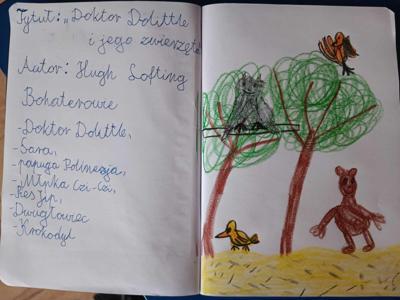 Tytuł: „Doktor Dolittle
i jego zwierzęta
Autor: Hugh Lofting
Bohaterowie
-Doktor Dolittle,
-Sara,
-papuga Polinezja,
-Małpka Czi-Czi,
-Pies Jip,
-Dwugłowiec
-Krokodyl